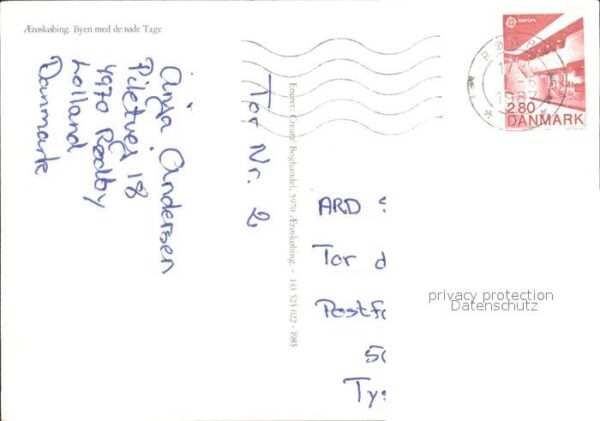 Ærøskøbing. Byen med de røde Tage
Anja Andersen
Piletvej 18
4970 Rødby
Lolland
Danmark
Tor Nr. 2
Eneret: Creutz Boghandel, 5970 Ærøskøbing. - 145 523 022 - 1985
EUROPA
2.80
DANMARK
RØDBY
1987
ARD S
Tor d
Postf
50
Tys
privacy protection
Datenschutz